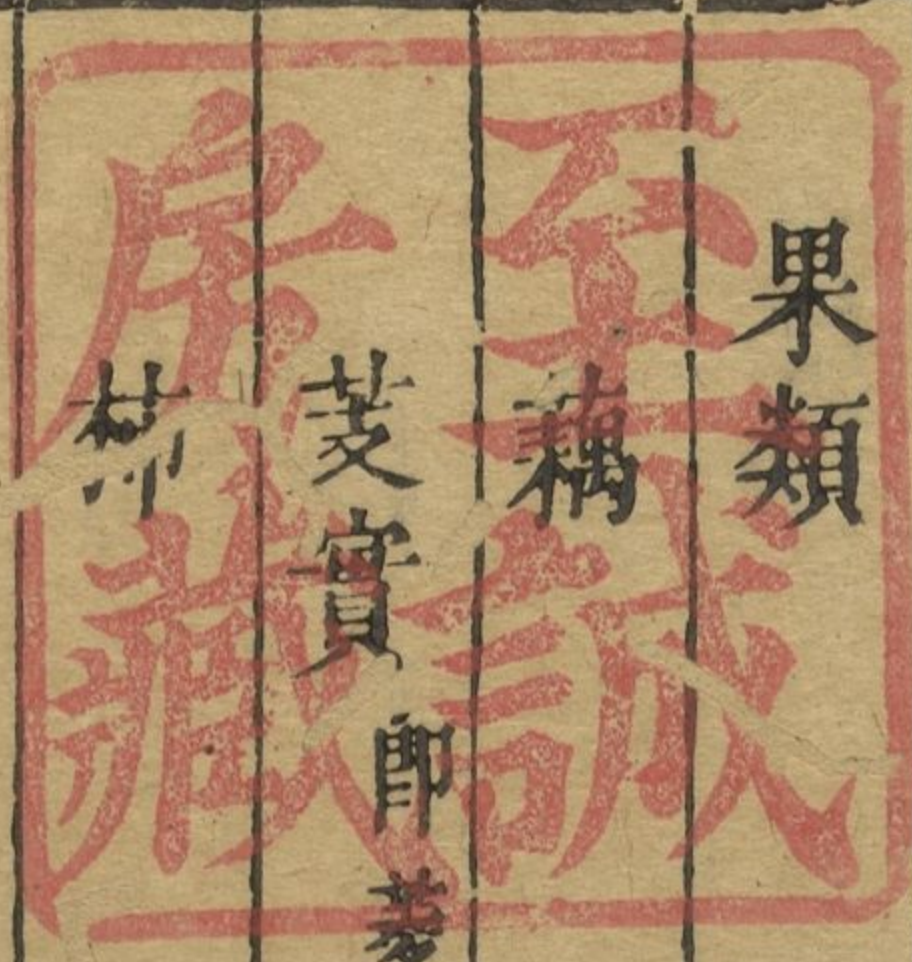 果類
藕
芰實 即菱
枾
至誠
房藏